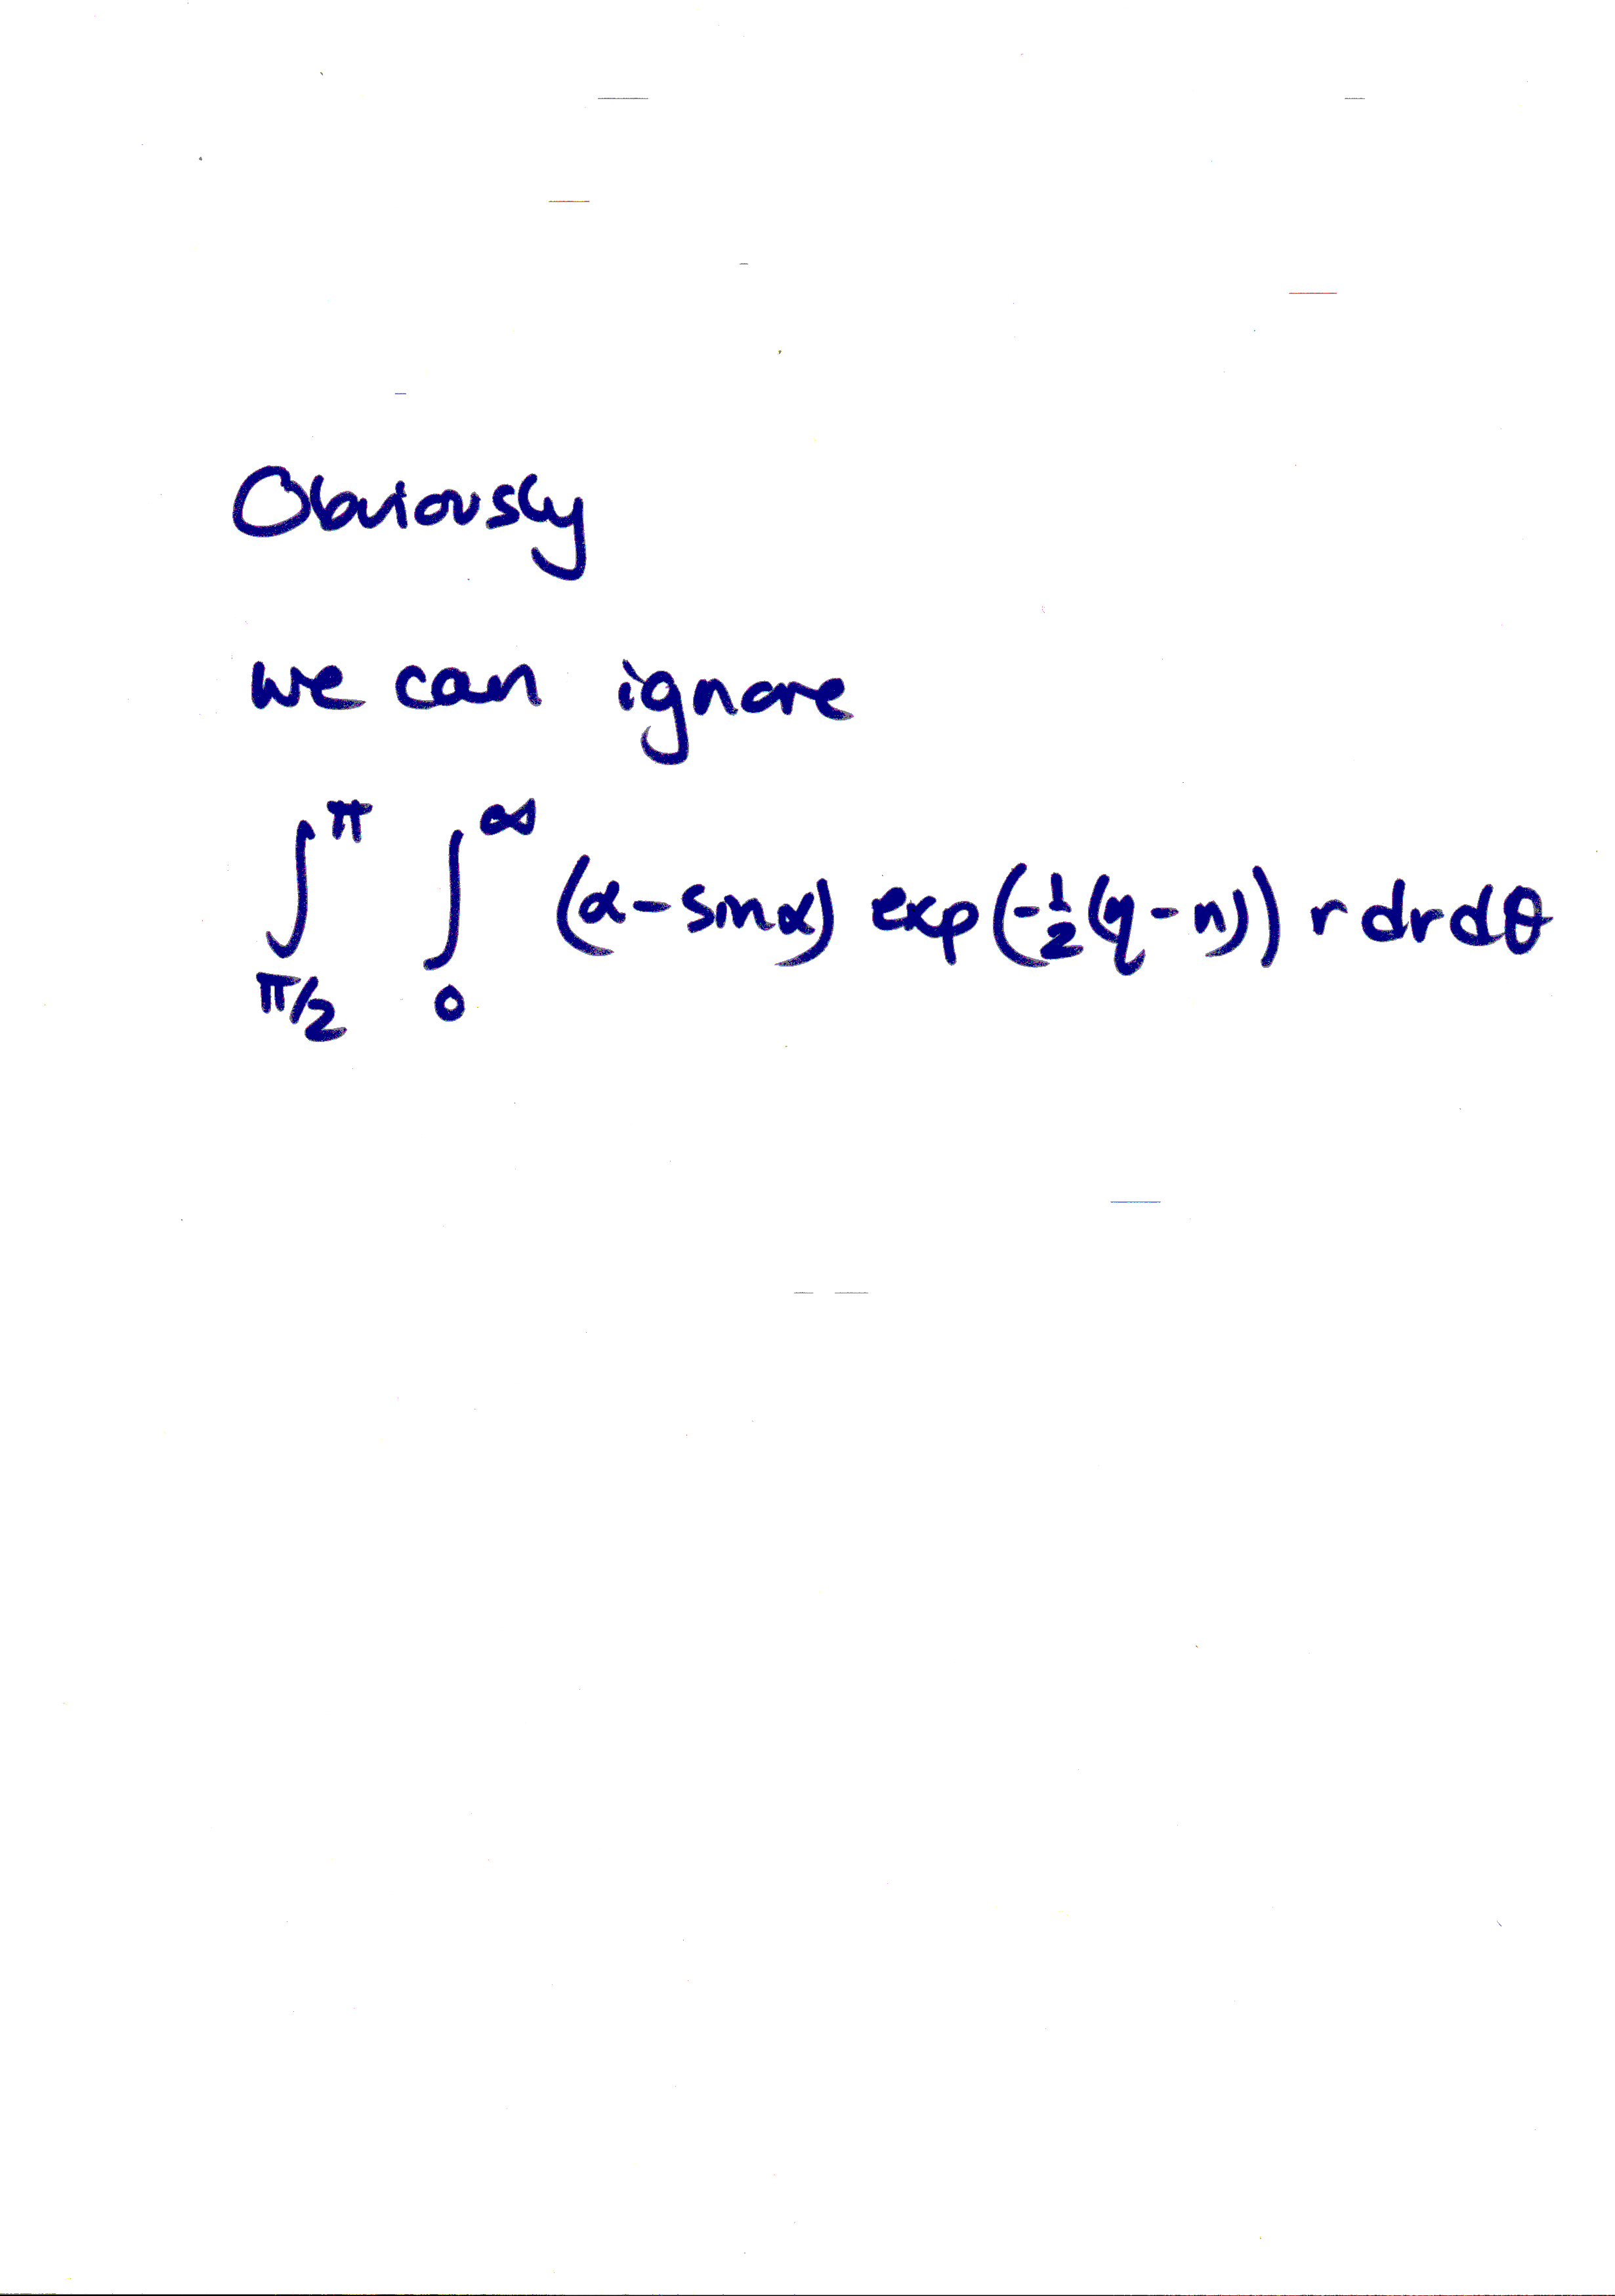 Obviously
we can ignore
∫_{π/2}^{π} ∫_{0}^{∞} (α-sinα) exp(-½(η-n)) r dr dθ